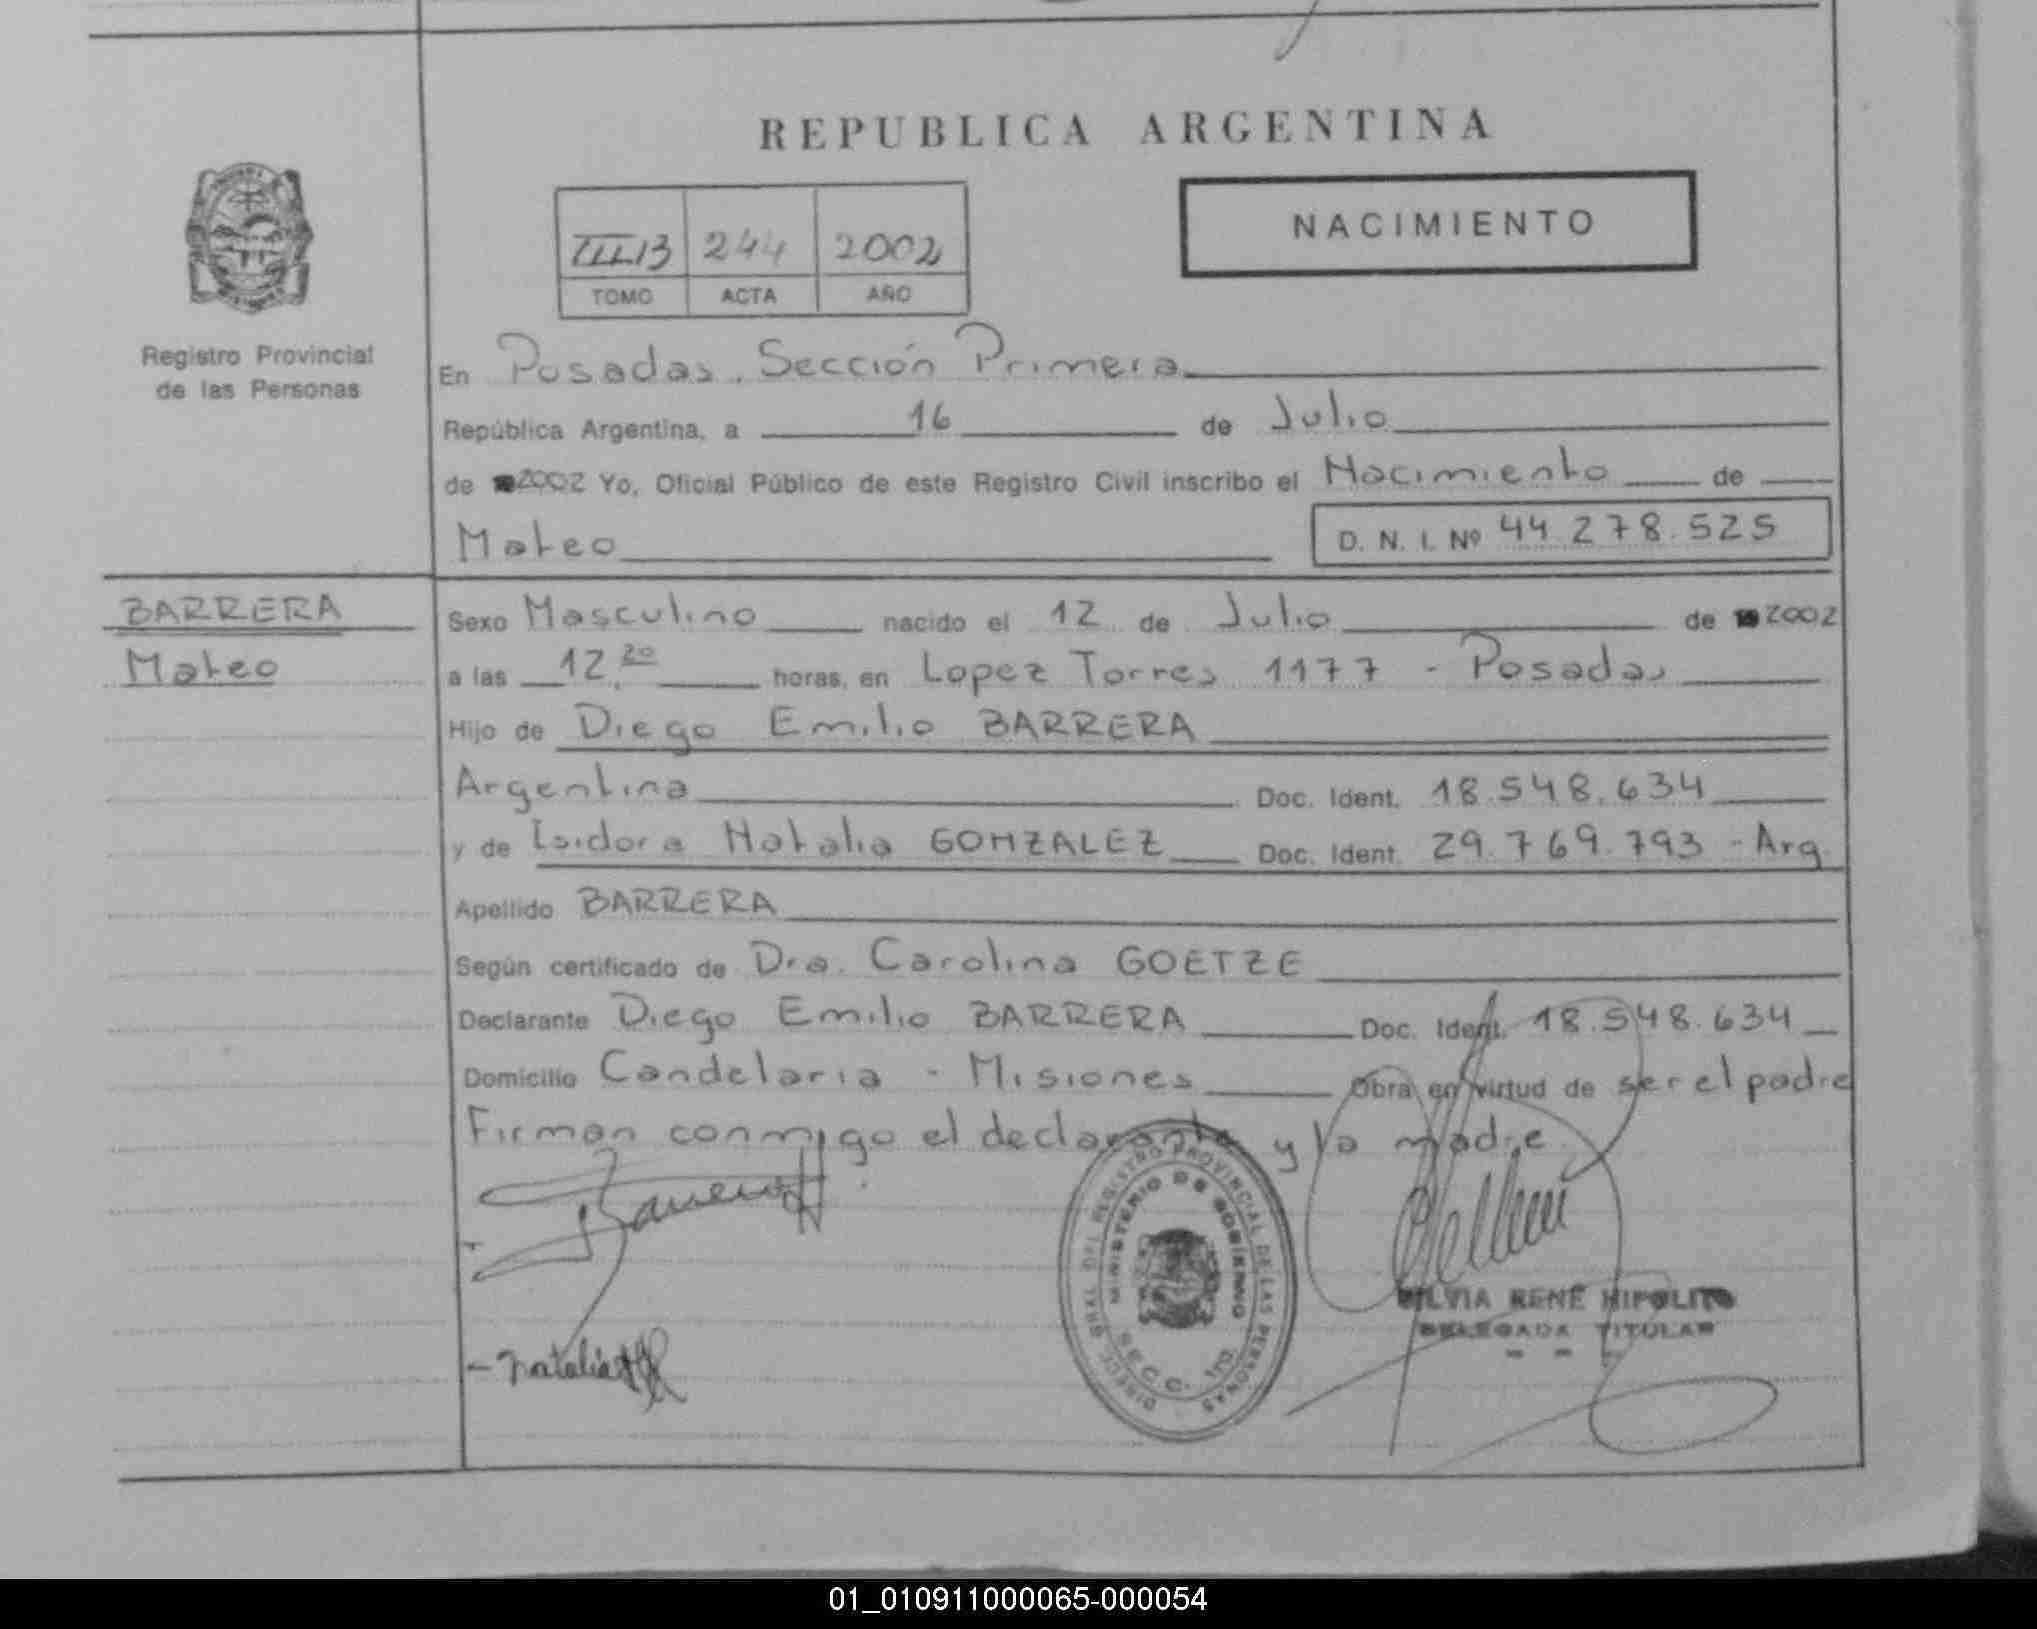 REPUBLICA ARGENTINA
NACIMIENTO
III 13 244 2002
TOMO ACTA AÑO
Registro Provincial
de las Personas
En Posadas, Sección Primera
República Argentina, a 16 de Julio
de 2002 Yo, Oficial Público de este Registro Civil inscribo el Nacimiento de
Mateo D. N. I. Nº 44.278.525
BARRERA
Mateo
Sexo Masculino nacido el 12 de Julio de 2002
a las 12,20 horas, en Lopez Torres 1177 - Posadas
Hijo de Diego Emilio BARRERA
Argentina Doc. Ident. 18.548.634
y de Isidora Natalia GONZALEZ Doc. Ident. 29.769.793 - Arg.
Apellido BARRERA
Según certificado de Dra. Carolina GOETZE
Declarante Diego Emilio BARRERA Doc. Ident. 18.548.634
Domicilio Candelaria - Misiones Obra en virtud de ser el padre
Firman conmigo el declarante y la madre.
DIRECC. GRAL. DEL REGISTRO PROVINCIAL DE LAS PERSONAS
MINISTERIO DE GOBIERNO
SECC. 1ra.
SILVIA RENÉ HIPOLITO
DELEGADA TITULAR
- Natalia
01_010911000065-000054